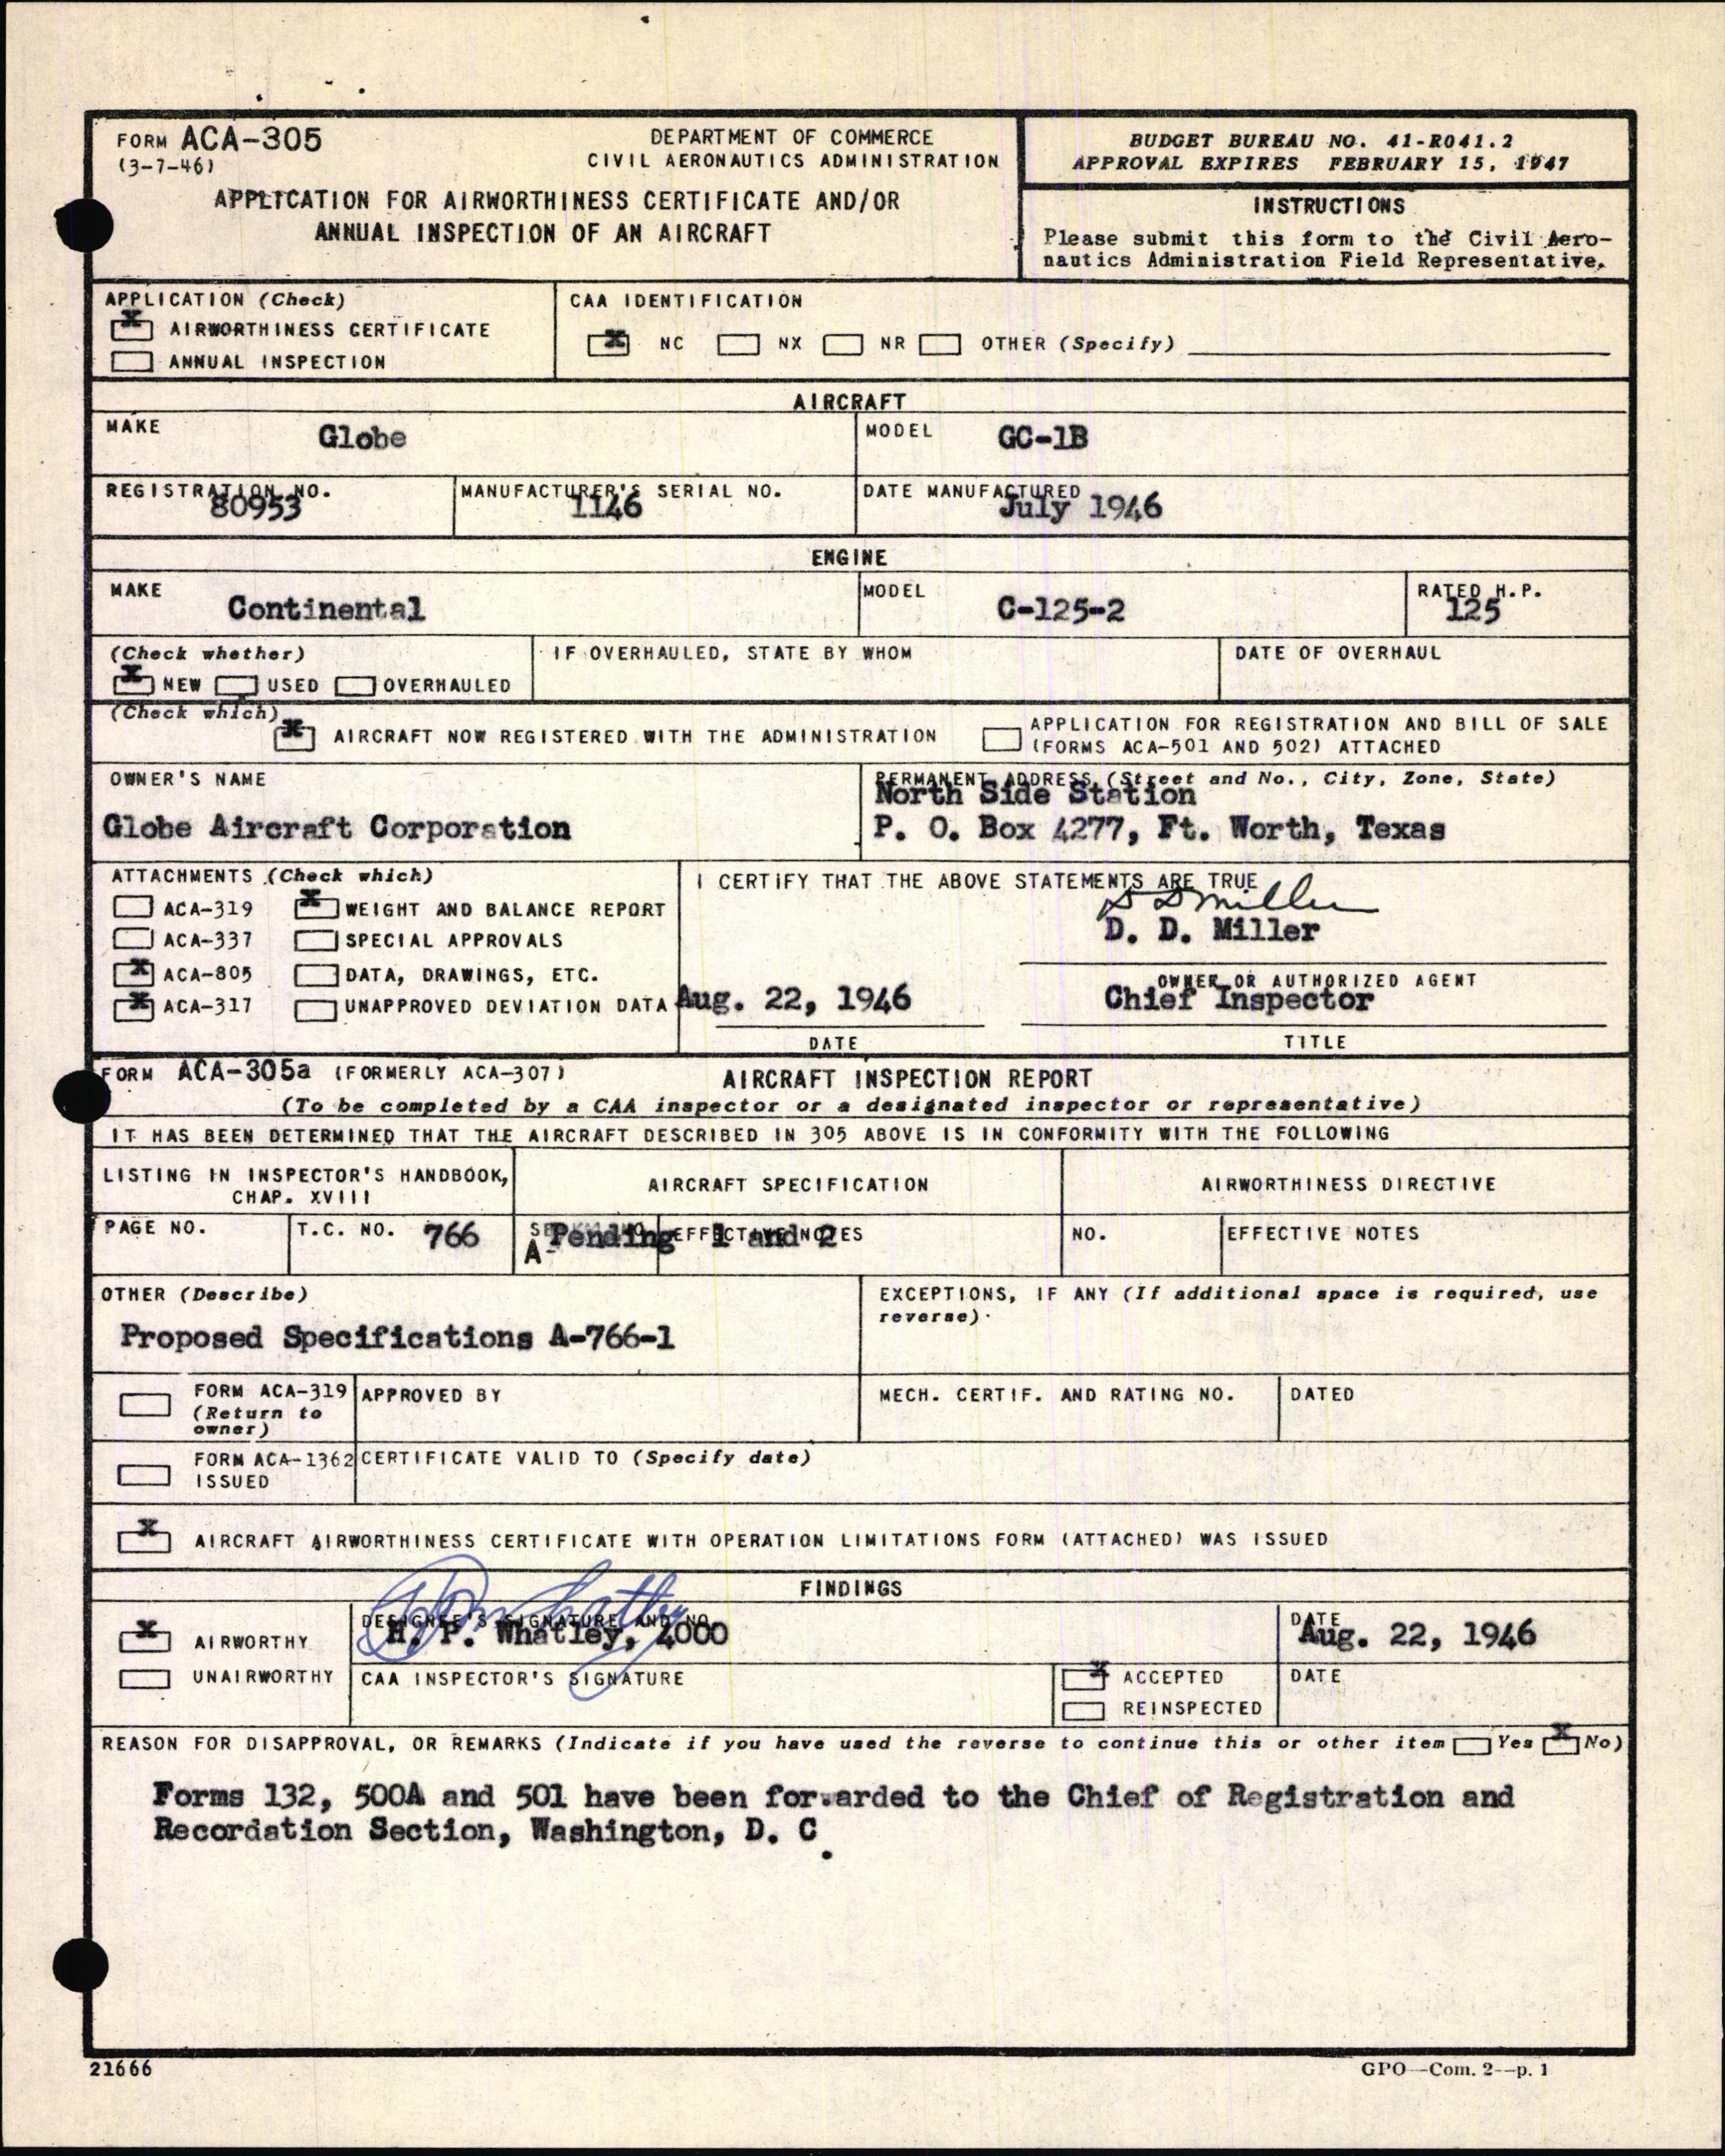 FORM ACA-305
(3-7-46)
DEPARTMENT OF COMMERCE
CIVIL AERONAUTICS ADMINISTRATION
APPLICATION FOR AIRWORTHINESS CERTIFICATE AND/OR
ANNUAL INSPECTION OF AN AIRCRAFT
BUDGET BUREAU NO. 41-R041.2
APPROVAL EXPIRES FEBRUARY 15, 1947
INSTRUCTIONS
Please submit this form to the Civil Aero-
nautics Administration Field Representative.
APPLICATION (Check)
X AIRWORTHINESS CERTIFICATE
ANNUAL INSPECTION
CAA IDENTIFICATION
X NC NX NR OTHER (Specify)
AIRCRAFT
MAKE Globe
MODEL GC-1B
REGISTRATION NO. 80953
MANUFACTURER'S SERIAL NO. 1146
DATE MANUFACTURED July 1946
ENGINE
MAKE Continental
MODEL C-125-2
RATED H.P. 125
(Check whether)
X NEW USED OVERHAULED
IF OVERHAULED, STATE BY WHOM
DATE OF OVERHAUL
(Check which)
X AIRCRAFT NOW REGISTERED WITH THE ADMINISTRATION
APPLICATION FOR REGISTRATION AND BILL OF SALE
(FORMS ACA-501 AND 502) ATTACHED
OWNER'S NAME
Globe Aircraft Corporation
PERMANENT ADDRESS (Street and No., City, Zone, State)
North Side Station
P. O. Box 4277, Ft. Worth, Texas
ATTACHMENTS (Check which)
ACA-319 X WEIGHT AND BALANCE REPORT
ACA-337 SPECIAL APPROVALS
X ACA-805 DATA, DRAWINGS, ETC.
X ACA-317 UNAPPROVED DEVIATION DATA
I CERTIFY THAT THE ABOVE STATEMENTS ARE TRUE
D D Miller
D. D. Miller
OWNER OR AUTHORIZED AGENT
Aug. 22, 1946
Chief Inspector
DATE
TITLE
FORM ACA-305a (FORMERLY ACA-307)
AIRCRAFT INSPECTION REPORT
(To be completed by a CAA inspector or a designated inspector or representative)
IT HAS BEEN DETERMINED THAT THE AIRCRAFT DESCRIBED IN 305 ABOVE IS IN CONFORMITY WITH THE FOLLOWING
LISTING IN INSPECTOR'S HANDBOOK,
CHAP. XVIII
AIRCRAFT SPECIFICATION
AIRWORTHINESS DIRECTIVE
PAGE NO.
T.C. NO. 766
A- Pending
EFFECTIVE NOTES 1 and 2
NO.
EFFECTIVE NOTES
OTHER (Describe)
Proposed Specifications A-766-1
EXCEPTIONS, IF ANY (If additional space is required, use
reverse).
FORM ACA-319
(Return to
owner)
APPROVED BY
MECH. CERTIF. AND RATING NO.
DATED
FORM ACA-1362
ISSUED
CERTIFICATE VALID TO (Specify date)
X AIRCRAFT AIRWORTHINESS CERTIFICATE WITH OPERATION LIMITATIONS FORM (ATTACHED) WAS ISSUED
FINDINGS
X AIRWORTHY
UNAIRWORTHY
DESIGNEE'S SIGNATURE AND NO.
H. P. Whatley, 4000
DATE
Aug. 22, 1946
CAA INSPECTOR'S SIGNATURE
X ACCEPTED
REINSPECTED
DATE
REASON FOR DISAPPROVAL, OR REMARKS (Indicate if you have used the reverse to continue this or other item Yes X No)
Forms 132, 500A and 501 have been forwarded to the Chief of Registration and
Recordation Section, Washington, D. C.
21666
GPO—Com. 2--p. 1